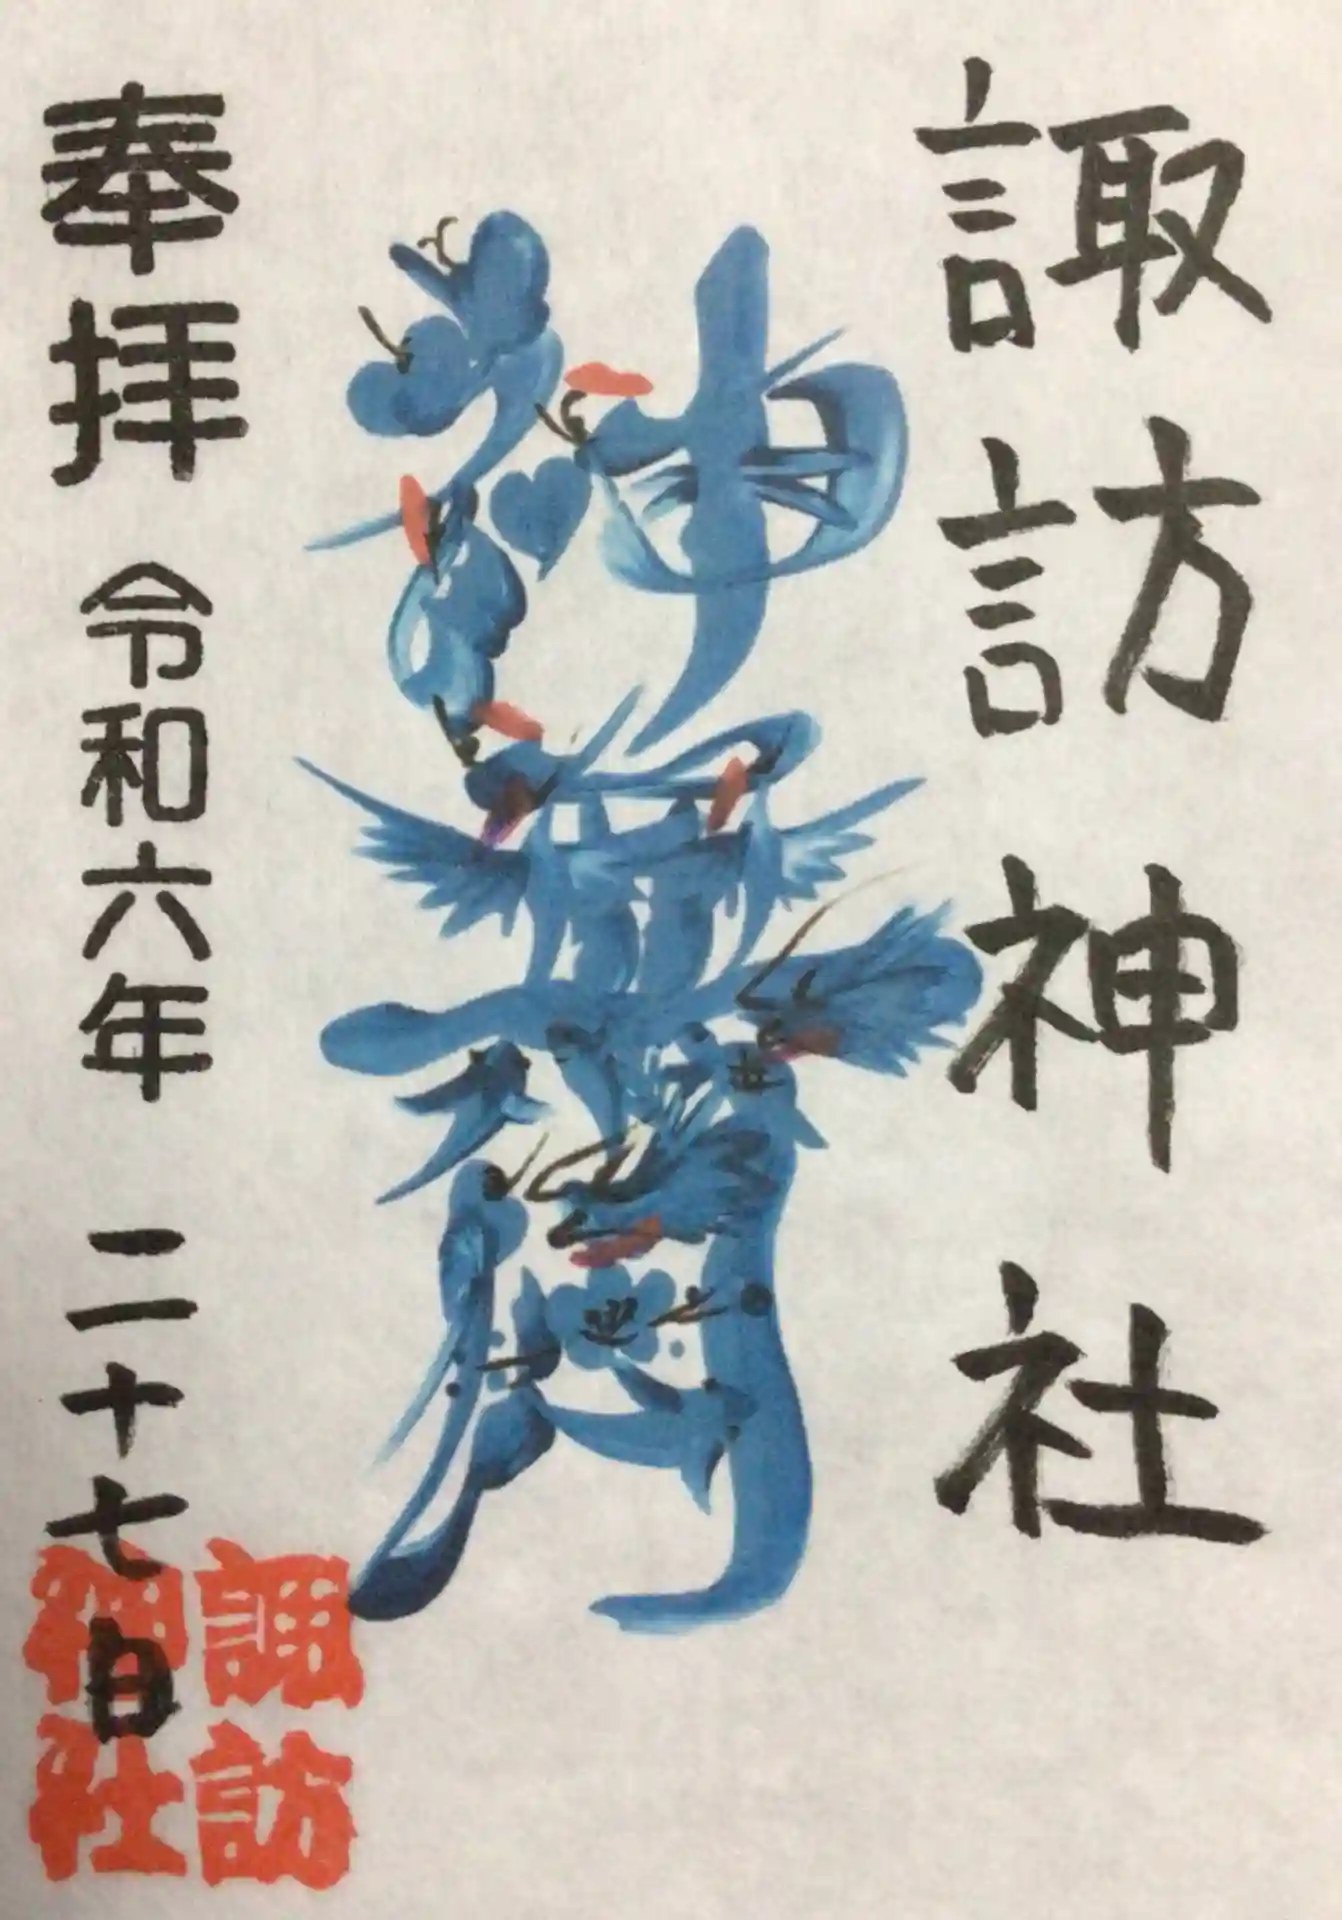 諏訪神社
神無月
奉拝 令和六年 二十七日
諏訪
神社